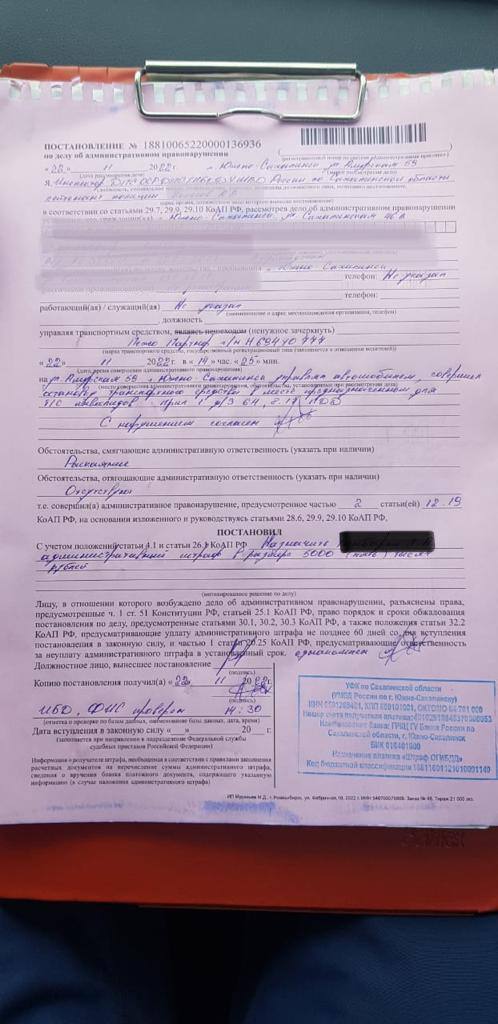 ПОСТАНОВЛЕНИЕ № 18810065220000136936
по делу об административном правонарушении
«22» 11 2022 г. г. Южно-Сахалинск ул. Амурская 59
(дата рассмотрения дела)
Я, Инспектор России по Сахалинской области
лейтенант полиции
в соответствии со статьями 29.7, 29.9, 29.10 КоАП РФ, рассмотрев дело об административном правонарушении
г. Южно-Сахалинск, ул. Сахалинская
г. Южно-Сахалинск
телефон: Не указал
телефон:
работающий(ая) / служащий(ая) Не указал
(наименование и адрес местонахождения организации, телефон)
должность
управляя транспортным средством, являясь пешеходом (ненужное зачеркнуть)
Пежо Партнер г/н
«22» 11 2022 г. в «14» час. «05» мин.
на ул. Амурская 59 г. Южно-Сахалинск управлял автомобилем, совершил
остановку транспортного средства в месте предназначенном для
т/с инвалидов, прил 1 д/з 6.4, 8.17 ПДД
С нарушением согласен
Обстоятельства, смягчающие административную ответственность (указать при наличии)
Раскаяние
Обстоятельства, отягощающие административную ответственность (указать при наличии)
Отсутствуют
т.е. совершил(а) административное правонарушение, предусмотренное частью 2 статьи(ей) 12.19
КоАП РФ, на основании изложенного и руководствуясь статьями 28.6, 29.9, 29.10 КоАП РФ,
ПОСТАНОВИЛ
С учетом положений статьи 4.1 и статьи 26.1 КоАП РФ Назначить
административный штраф в размере 5000 (пять) тысяч
рублей
(мотивированное решение по делу)
Лицу, в отношении которого возбуждено дело об административном правонарушении, разъяснены права,
предусмотренные ч. 1 ст. 51 Конституции РФ, статьей 25.1 КоАП РФ, право порядок и сроки обжалования
постановления по делу, предусмотренные статьями 30.1, 30.2, 30.3 КоАП РФ, а также положения статьи 32.2
КоАП РФ, предусматривающие уплату административного штрафа не позднее 60 дней со дня вступления
постановления в законную силу, и частью 1 статьи 20.25 КоАП РФ, предусматривающие ответственность
за неуплату административного штрафа в установленный срок.
Должностное лицо, вынесшее постановление
(подпись)
Копию постановления получил(а) «22» 11 2022
(подпись)
ИБД, ФИС проверен 14:30
(отметка о проверке по базам данных, наименование базы данных, дата, время)
Дата вступления в законную силу « » 20 г.
(заполняется при направлении в подразделение Федеральной службы
судебных приставов Российской Федерации)
Информация о получателе штрафа, необходимая в соответствии с правилами заполнения
расчетных документов на перечисление суммы административного штрафа,
сведения о вручении бланка платежного документа, содержащего указанную
информацию (в случае наложения административного штрафа)
УФК по Сахалинской области
(УМВД России по г. Южно-Сахалинск)
Сахалинской области, г. Южно-Сахалинск
БИК 016401800
Назначение платежа «Штраф ОГИБДД»
Код бюджетной классификации 18811601121010001140